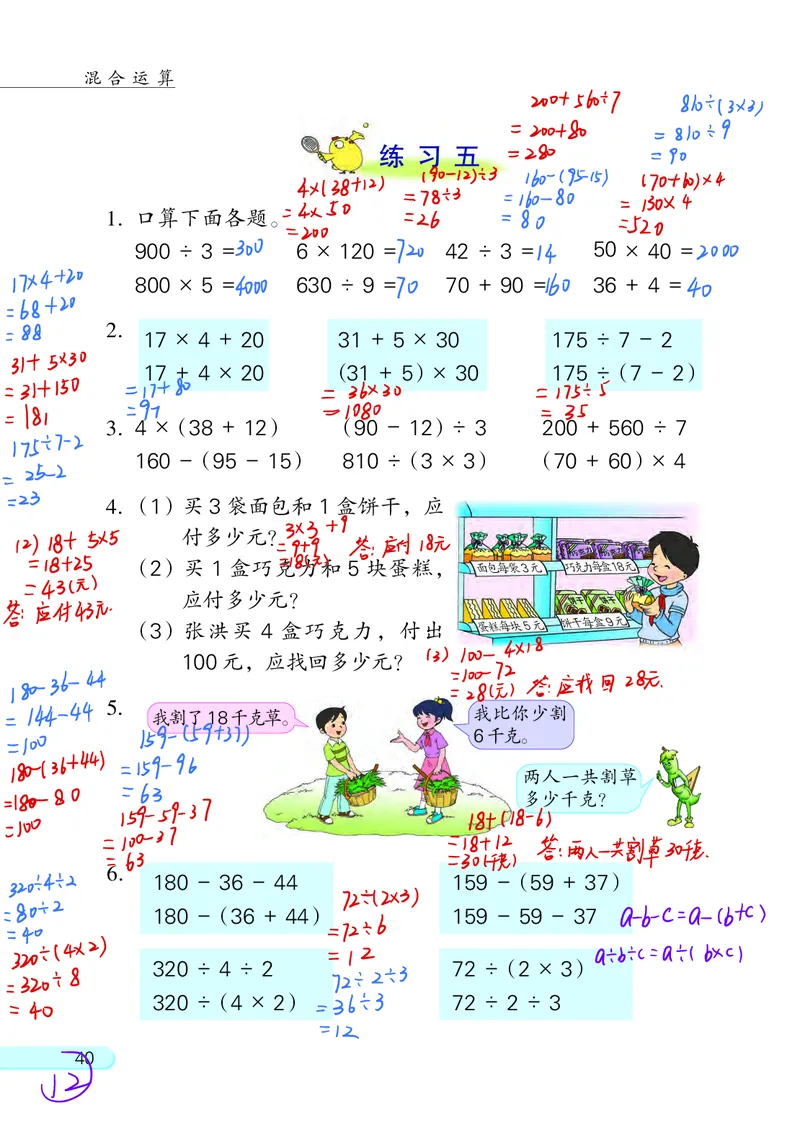 混合运算
200+560÷7
=200+80
=280
810÷(3×3)
=810÷9
=90
练习五
4×(38+12)
=4×50
=200
(90-12)÷3
=78÷3
=26
160-(95-15)
=160-80
=80
(70+60)×4
=130×4
=520
1. 口算下面各题。
900 ÷ 3 =300 6 × 120 =720 42 ÷ 3 =14 50 × 40 =2000
800 × 5 =4000 630 ÷ 9 =70 70 + 90 =160 36 + 4 = 40
17×4+20
=68+20
=88
31+5×30
=31+150
=181
175÷7-2
=25-2
=23
2. 17 × 4 + 20 31 + 5 × 30 175 ÷ 7 - 2
17 + 4 × 20 (31 + 5) × 30 175 ÷ (7 - 2)
=17+80
=97
=36×30
=1080
=175÷5
=35
3. 4 ×(38 + 12) (90 - 12)÷ 3 200 + 560 ÷ 7
160 -(95 - 15) 810 ÷(3 × 3) (70 + 60)× 4
4. (1) 买 3 袋面包和 1 盒饼干，应
付多少元？
3×3+9
=9+9
=18(元)
答:应付18元
(2) 买 1 盒巧克力和 5 块蛋糕，
应付多少元？
(3) 张洪买 4 盒巧克力，付出
100 元，应找回多少元？
面包每袋3元
巧克力每盒18元
蛋糕每块5元
饼干每盒9元
饼干
饼干
(2) 18+5×5
=18+25
=43(元)
答:应付43元.
(3) 100-4×18
=100-72
=28(元) 答:应找回28元.
5. 我割了18千克草。
我比你少割
6千克。
两人一共割草
多少千克？
18+(18-6)
=18+12
=30(千克) 答:两人一共割草30千克.
180-36-44
=144-44
=100
180-(36+44)
=180-80
=100
159-(59+37)
=159-96
=63
159-59-37
=100-37
=63
6. 180 - 36 - 44 159 -(59 + 37)
180 -(36 + 44) 159 - 59 - 37
a-b-c=a-(b+c)
a÷b÷c=a÷(b×c)
320 ÷ 4 ÷ 2 72 ÷(2 × 3)
320 ÷(4 × 2) 72 ÷ 2 ÷ 3
320÷4÷2
=80÷2
=40
320÷(4×2)
=320÷8
=40
72÷(2×3)
=72÷6
=12
72÷2÷3
=36÷3
=12
40
12